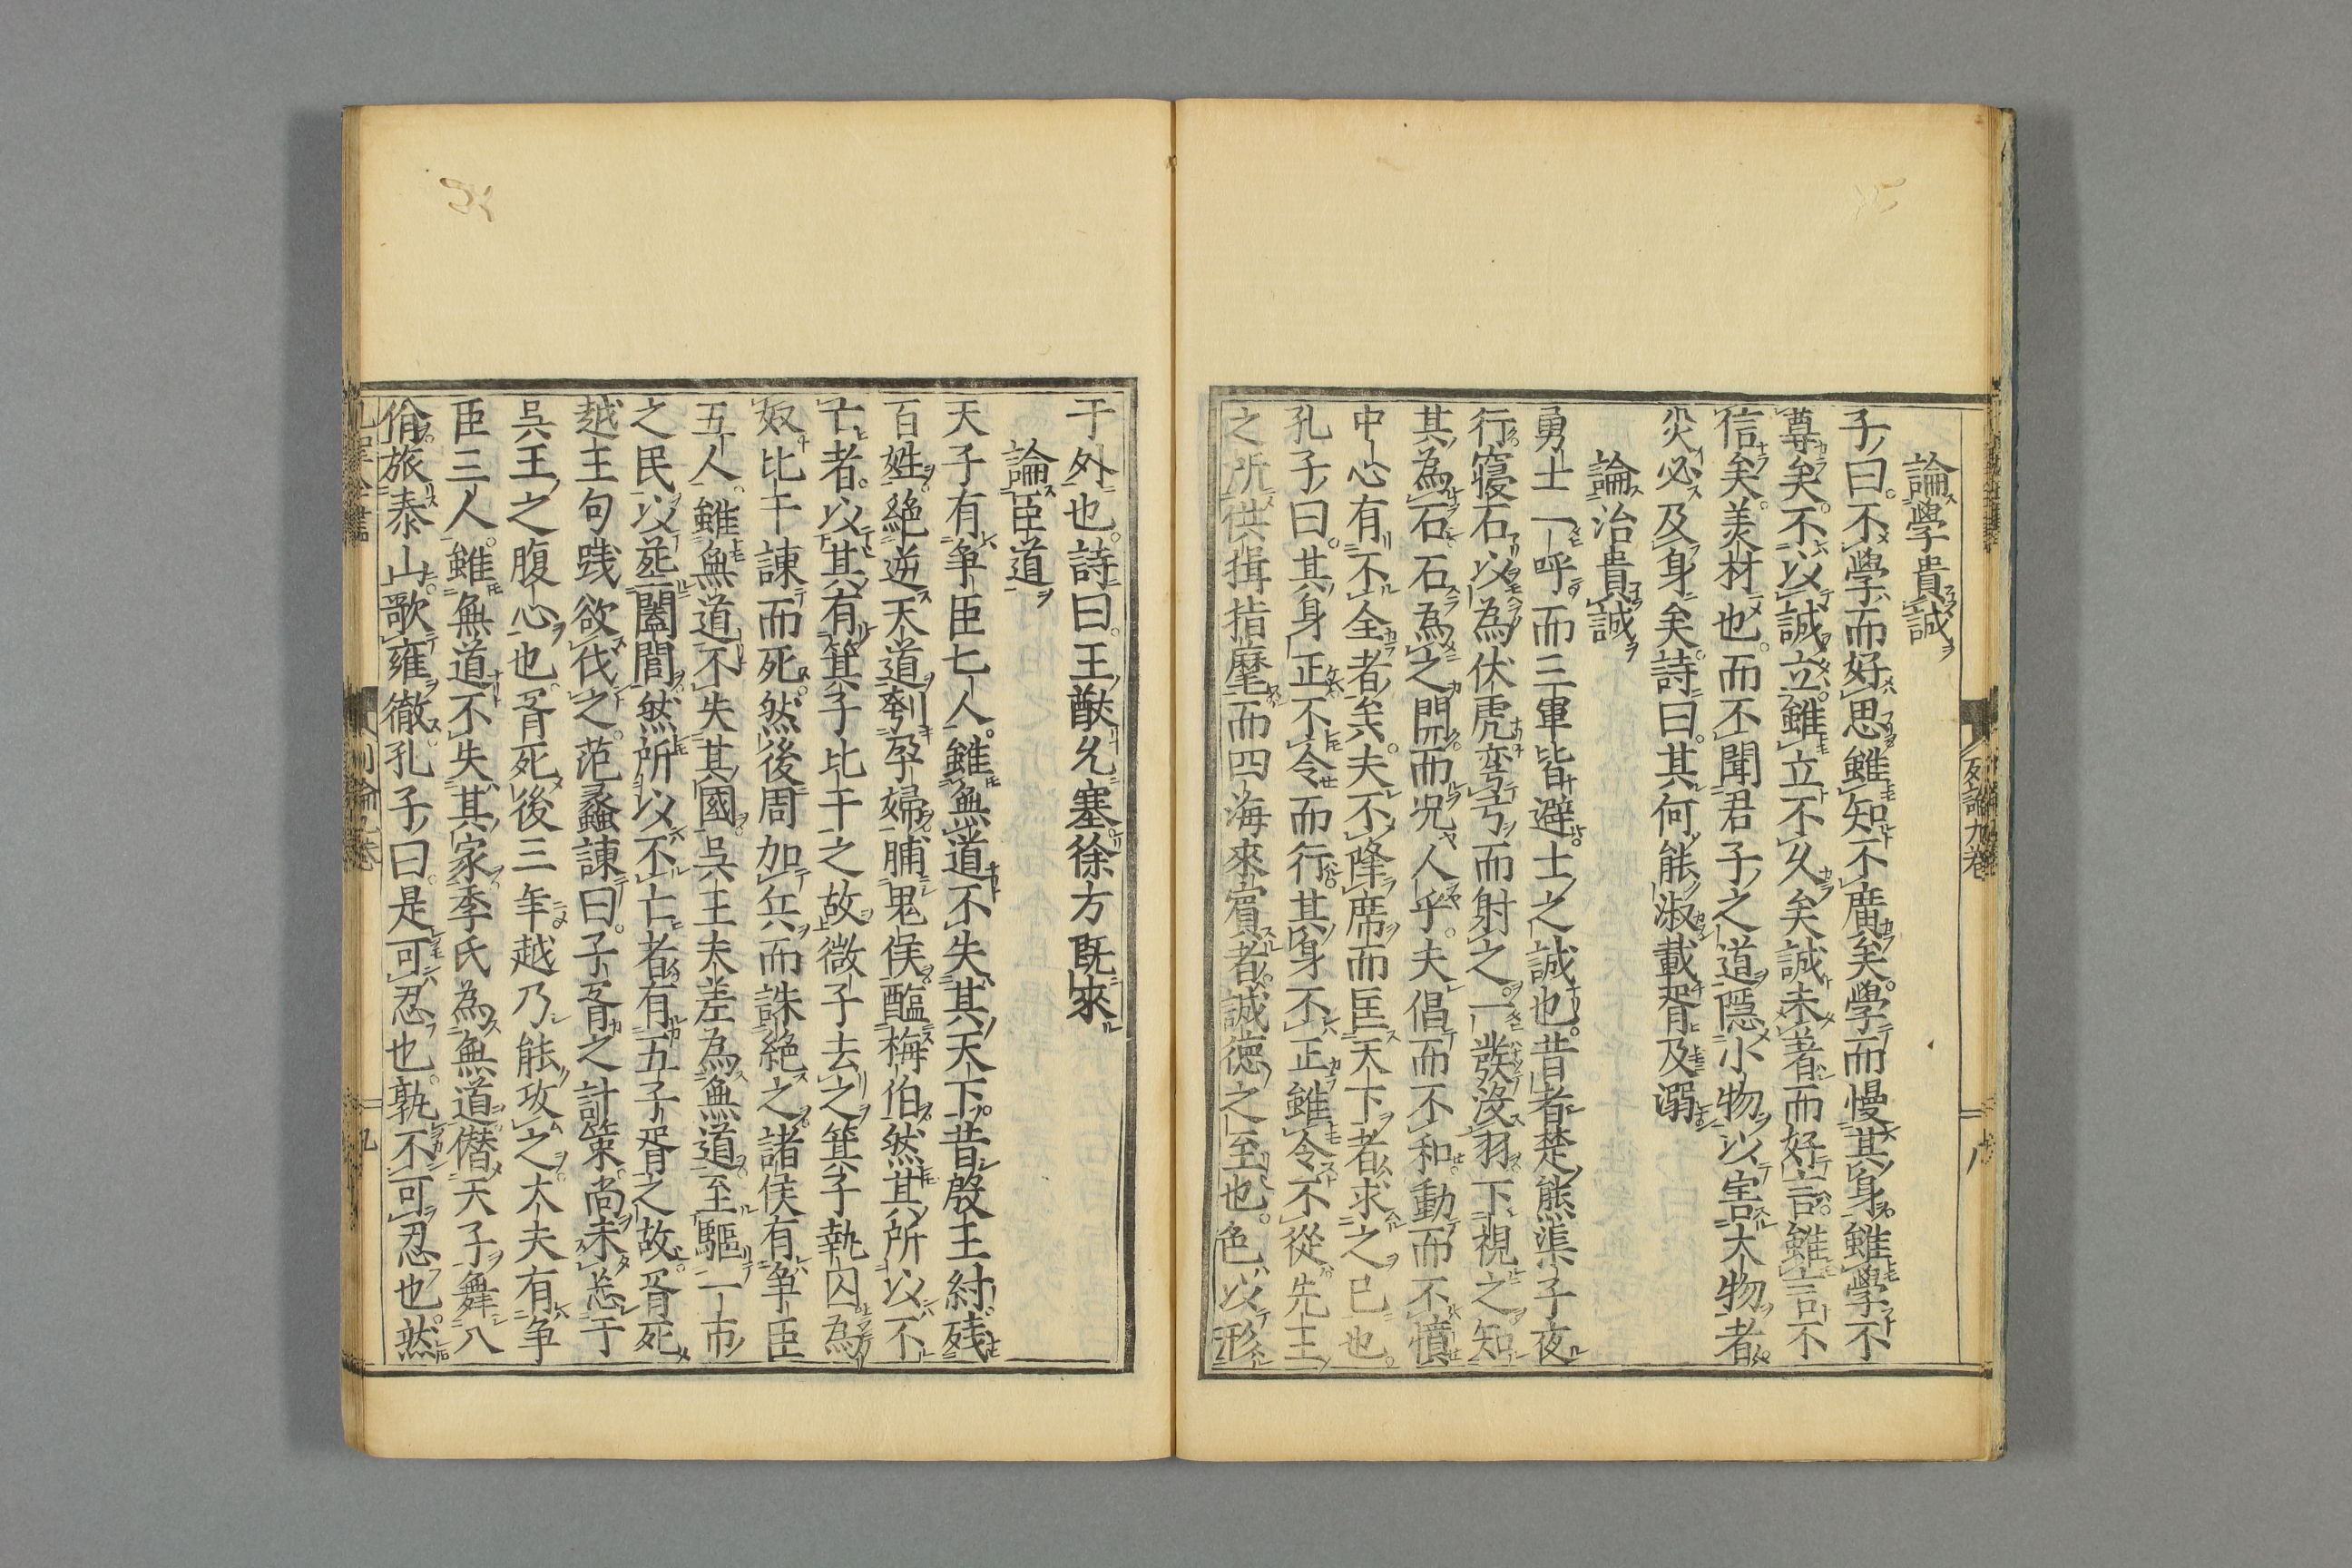 論學貴誠
子曰不學而好思雖知不廣矣學而慢其身雖學不
尊矣不以誠立雖立不久矣誠未著而好言雖言不
信矣美材也而不聞君子之道隱小物以害大物者
災必及身矣詩曰其何能淑載胥及溺
論治貴誠
勇士一呼而三軍皆避士之誠也昔者楚熊渠子夜
行寢石以為伏虎彎弓而射之一發沒羽下視之知
其為石石為之開而况人乎夫倡而不和動而不憤
中心有不全者矣夫不降席而匡天下者求之已也
孔子曰其身正不令而行其身不正雖令不從先王
之所供揖指麾而四海來賓者誠德之至也色以形
于外也詩曰王猷允塞徐方既來
論臣道
天子有争臣七人雖無道不失其天下昔殷王紂残
百姓絶逆天道刳孕婦脯鬼侯醢梅伯然其所以不
亡者以其有箕子比干之故微子去之箕子執囚為
奴比干諌而死然後周加兵而誅絶之諸侯有争臣
五人雖無道不失其國呉王夫差為無道至驅一市
之民以葬闔閭然所以不亡者有五子胥之故胥死
越王句践欲伐之范蠡諌曰子胥之計策尚未忘于
呉王之腹心也胥死後三年越乃能攻之大夫有争
臣三人雖無道不失其家季氏為無道僭天子舞八
佾旅泰山歌雍徹孔子曰是可忍也孰不可忍也然